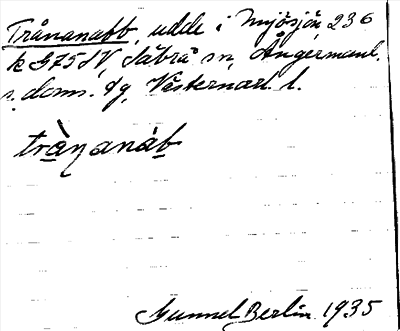 Trånanabb, udde i Mjösjön 236
k G75 SV, Säbrå sn, Ångermanl.
s. doms. dg, Västernorrl. l.
trànanáb
Gunnel Berlin 1935